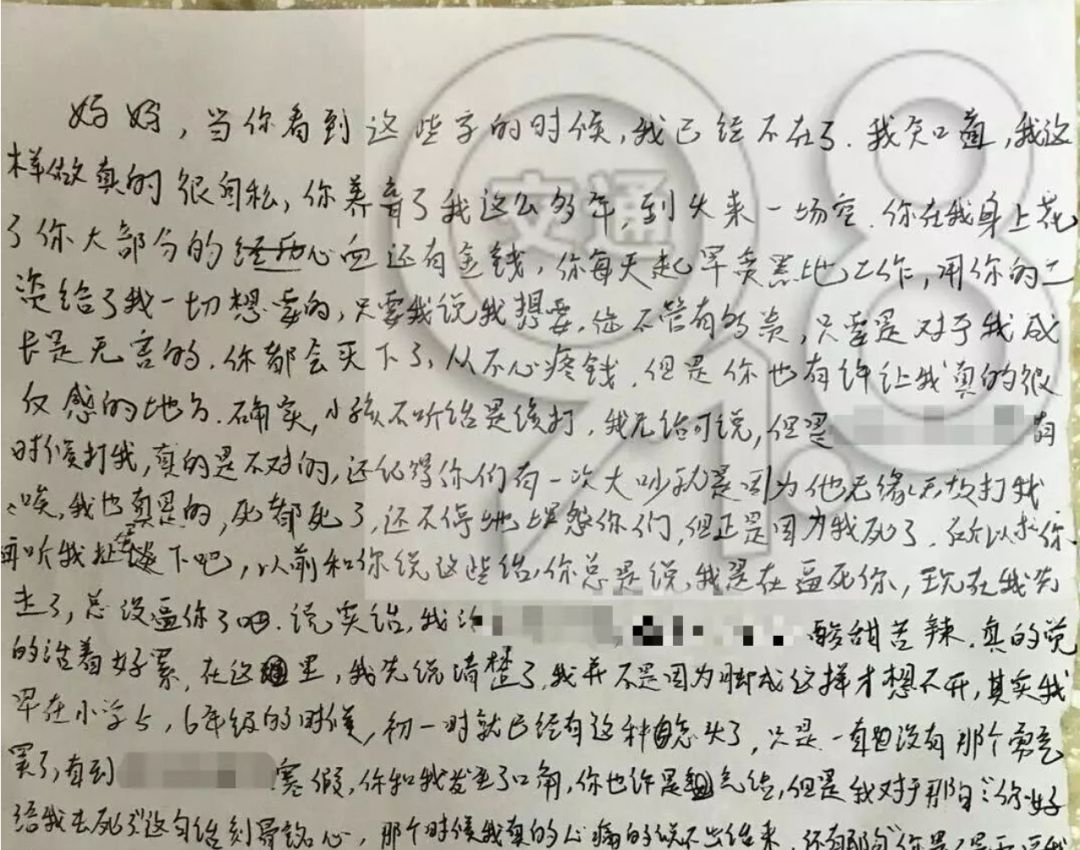 妈妈,当你看到这些字的时候,我已经不在了.我知道,我这
样做真的很自私,你养育了我这么多年,到头来一场空.你在我身上花
了你大部分的心血还有金钱,你每天起早贪黑地工作,用你的工
资给了我一切想要的,只要我说我想要,你不管有多贵,只要是对于我成
长是无害的.你都会买下了,从不心疼钱.但是你也有许让我真的很
反感的地方.确实,小孩不听话是该打,我无话可说,但是 有
时候打我,真的是不对的,还记得你们有一次大吵就是因为他无缘无故打我
唉,我也真是的,死都死了,还不停地埋怨你们,但正是因为我死了.所以求你
再听我扯谈下吧,以前和你说这些话,你总是说,我是在逼死你,现在我先
走了,总没逼你了吧.说实话,我 酸甜苦辣.真的觉
的活着好累.在这里,我先说清楚了,我并不是因为脚成这样才想不开,其实我
早在小学5,6年级的时候,初一时就已经有这种念头了,只是一直没有那个勇气
罢了,直到 寒假,你和我发生了口角,你也许是气话,但是我对于那句"你好
给我去死了"这句话刻骨铭心,那个时候我真的心痛的说不出话来,还有那句"你是
交通
91.8